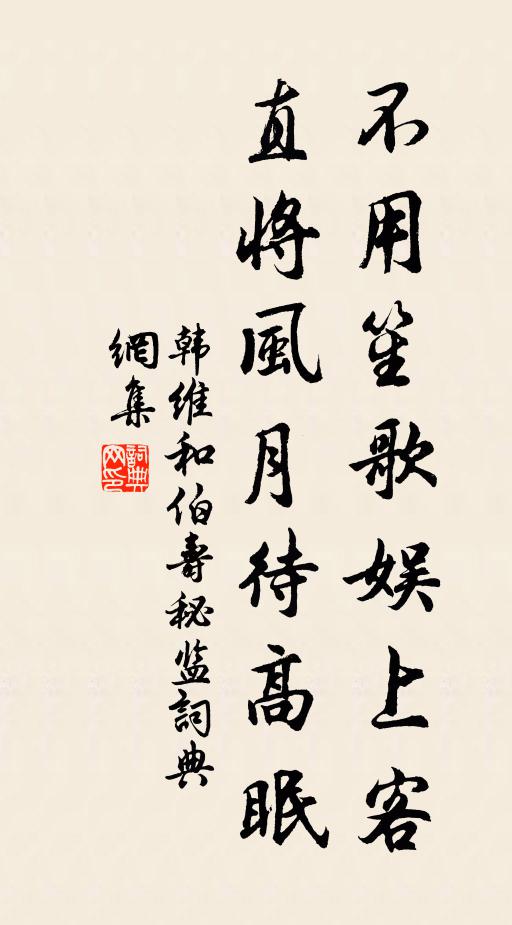 不用笙歌娛上客
直將風月待高眠
韩維和伯壽秘监詞典
網集
詞典网印